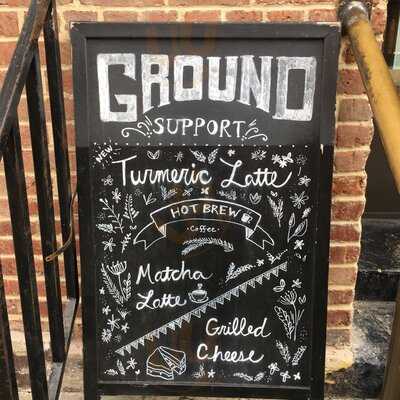 GROUND
SUPPORT
NEW
Turmeric Latte
HOT BREW
Coffee
Matcha
Latte
Grilled
Cheese